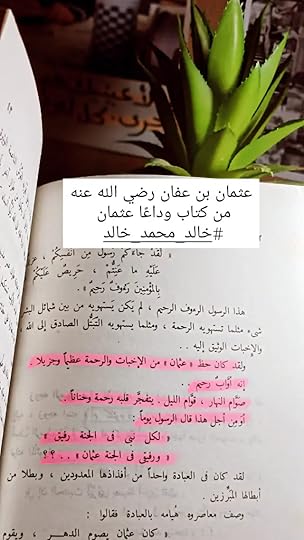 عثمان بن عفان رضي الله عنه
من كتاب وداعًا عثمان
#خالد_محمد_خالد
لقد جاءكم رسول من أنفسكم ، عزيز
عليه ما عنتم ، حريص عليكم
بالمؤمنين رءوف رحيم
هذا الرسول الرءوف الرحيم ، لم يكن يستهويه من بين شمائل البشر
شىء مثلما تستهويه الرحمة ، ومثلما يستهويه التبتل الصادق إلى الله
والإخبات الوثيق إليه ..
ولقد كان حظ « عثمان » من الإخبات والرحمة عظيماً وجزيلا .
إنه أوّاب رحيم .
صوّام النهار ، قوّام الليل . يتفجّر قلبه رحمة وحناناً .
أو من أجل هذا قال الرسول يوماً :
« لكل نبى فى الجنة رفيق »
« ورفيق فى الجنة عثمان » . . ؟ ؟
لقد كان فى العبادة واحداً من أفذاذها المعدودين ، وبطلا من
أبطالها المبرّزين .
وصف معاصروه هيامه بالعبادة فقالوا :
« كان عثمان يصوم الدهـــر ، ويقوم